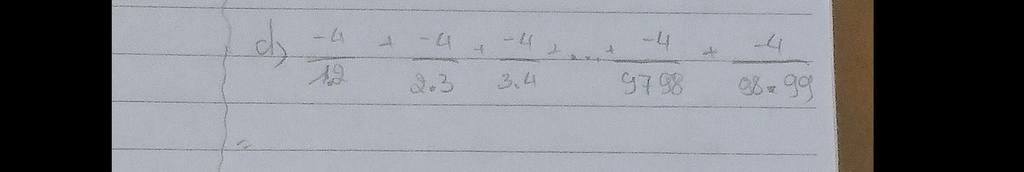 d) -4/1.2 + -4/2.3 + -4/3.4 + ... + -4/97.98 + -4/98.99
=